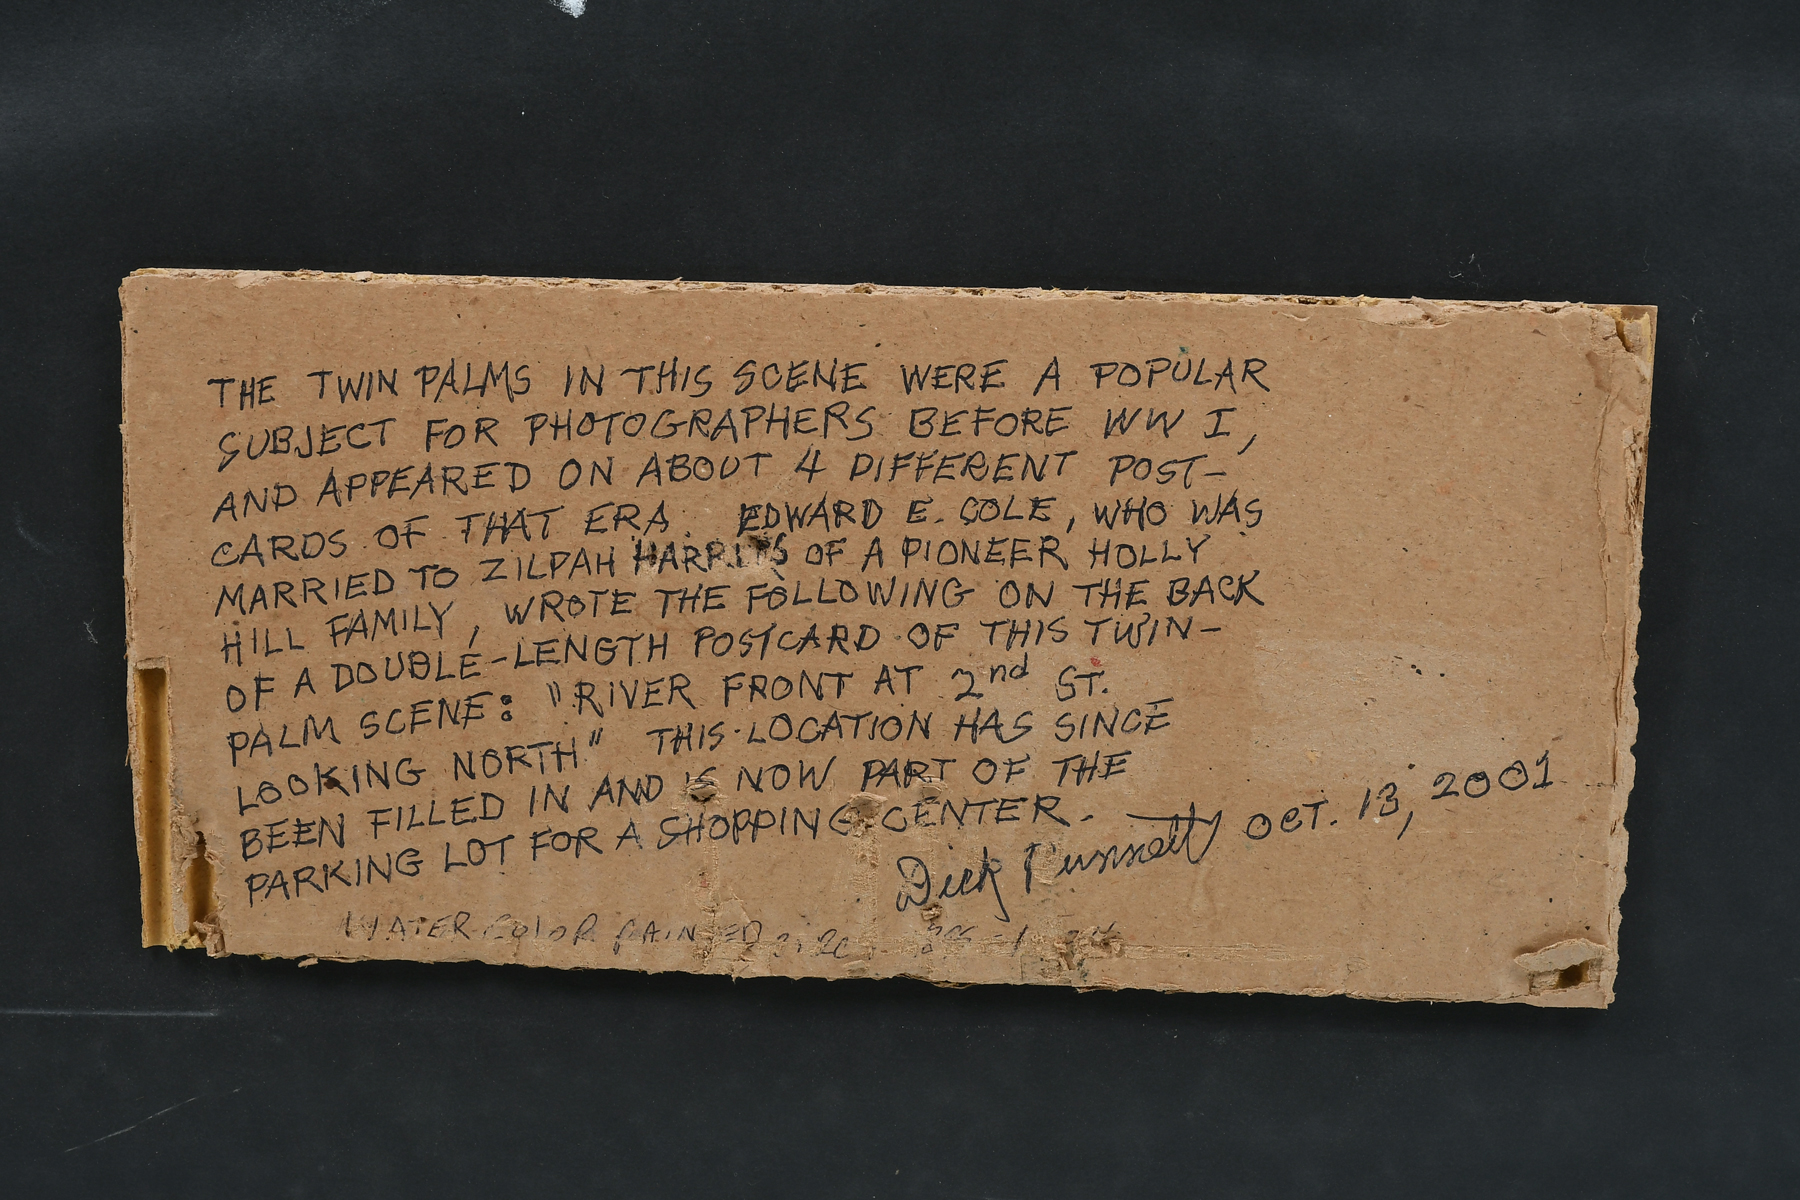 THE TWIN PALMS IN THIS SCENE WERE A POPULAR
SUBJECT FOR PHOTOGRAPHERS BEFORE WW I,
AND APPEARED ON ABOUT 4 DIFFERENT POST-
CARDS OF THAT ERA. EDWARD E. COLE, WHO WAS
MARRIED TO ZILPAH HARRIS OF A PIONEER HOLLY
HILL FAMILY, WROTE THE FOLLOWING ON THE BACK
OF A DOUBLE-LENGTH POSTCARD OF THIS TWIN-
PALM SCENE: "RIVER FRONT AT 2nd ST.
LOOKING NORTH" THIS LOCATION HAS SINCE
BEEN FILLED IN AND IS NOW PART OF THE
PARKING LOT FOR A SHOPPING CENTER.
Dick Punnett OCT. 13, 2001
WATER COLOR PAINTED